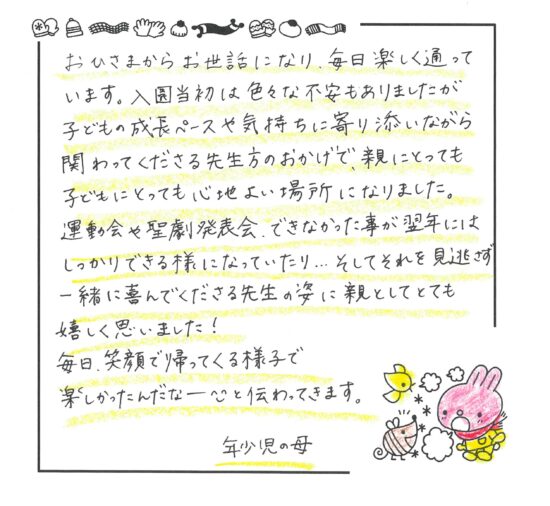 おひさまからお世話になり、毎日楽しく通って
います。入園当初は色々な不安もありましたが
子どもの成長ペースや気持ちに寄り添いながら
関わってくださる先生方のおかげで、親にとっても
子どもにとっても心地よい場所になりました。
運動会や聖劇発表会、できなかった事が翌年には
しっかりできる様になっていたり…そしてそれを見逃さず
一緒に喜んでくださる先生の姿に親としてとても
嬉しく思いました!
毎日、笑顔で帰ってくる様子で
楽しかったんだなー心と伝わってきます。
年少児の母